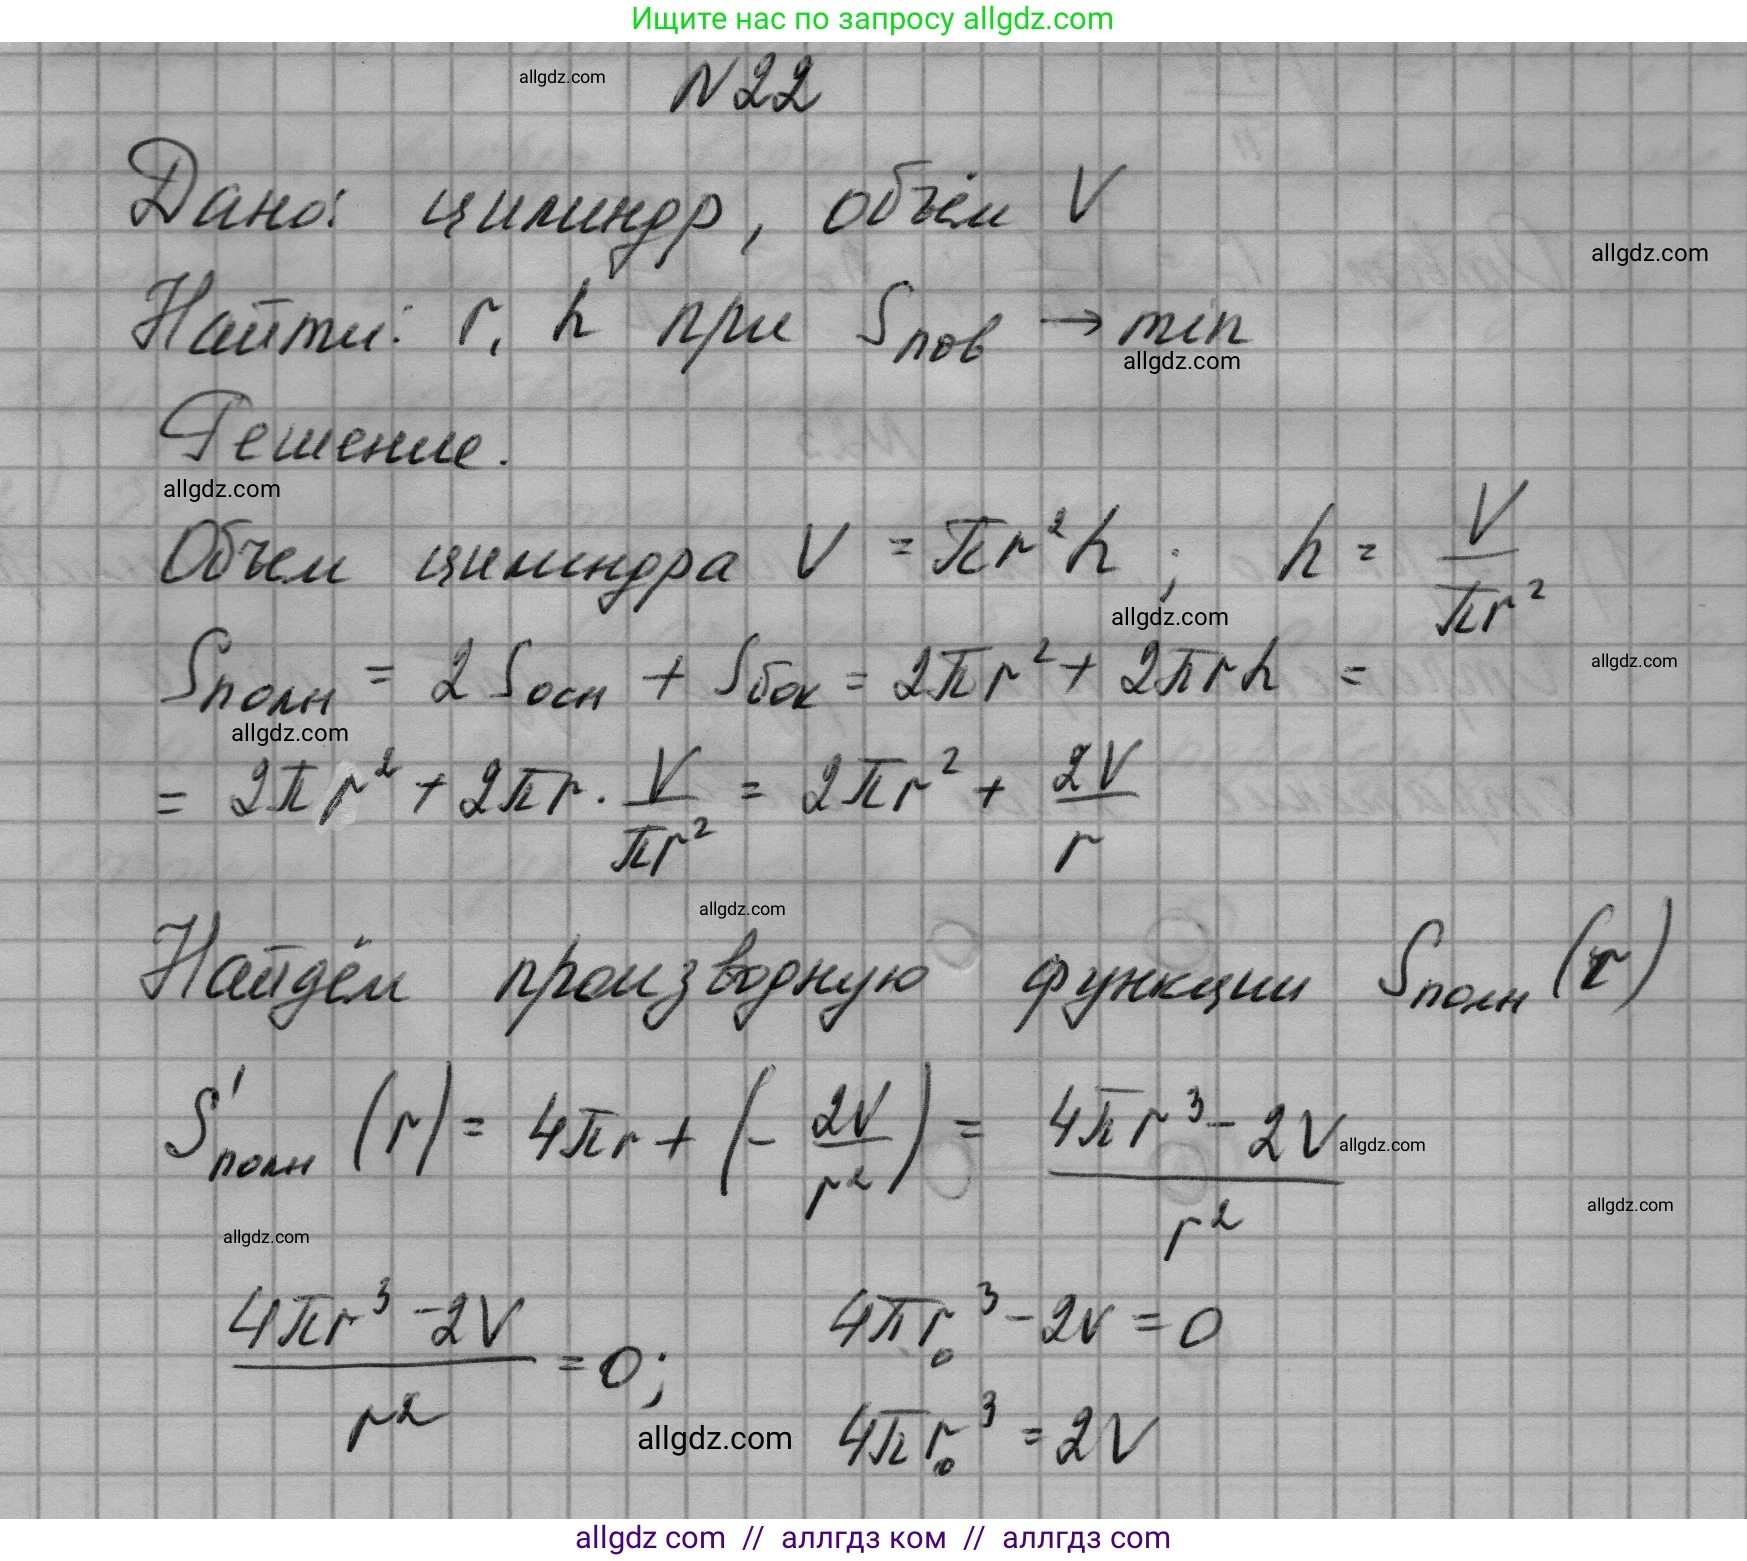 Ищите нас по запросу allgdz.com
allgdz.com
N22
Дано: цилиндр, объём V
allgdz.com
Найти: r, h при Sпов → min
allgdz.com
Решение.
allgdz.com
Объем цилиндра V = πr²h ; h = V/πr²
allgdz.com
Sполн = 2Sосн + Sбок = 2πr² + 2πrh =
allgdz.com
allgdz.com
= 2πr² + 2πr · V/πr² = 2πr² + 2V/r
allgdz.com
Найдём производную функции Sполн (r)
S'полн (r) = 4πr + (- 2V/r²) = 4πr³ - 2V/r²
allgdz.com
allgdz.com
allgdz.com
4πr³ - 2V/r² = 0; 4πr₀³ - 2V = 0
allgdz.com
4πr₀³ = 2V
allgdz com // аллгдз ком // аллгдз com